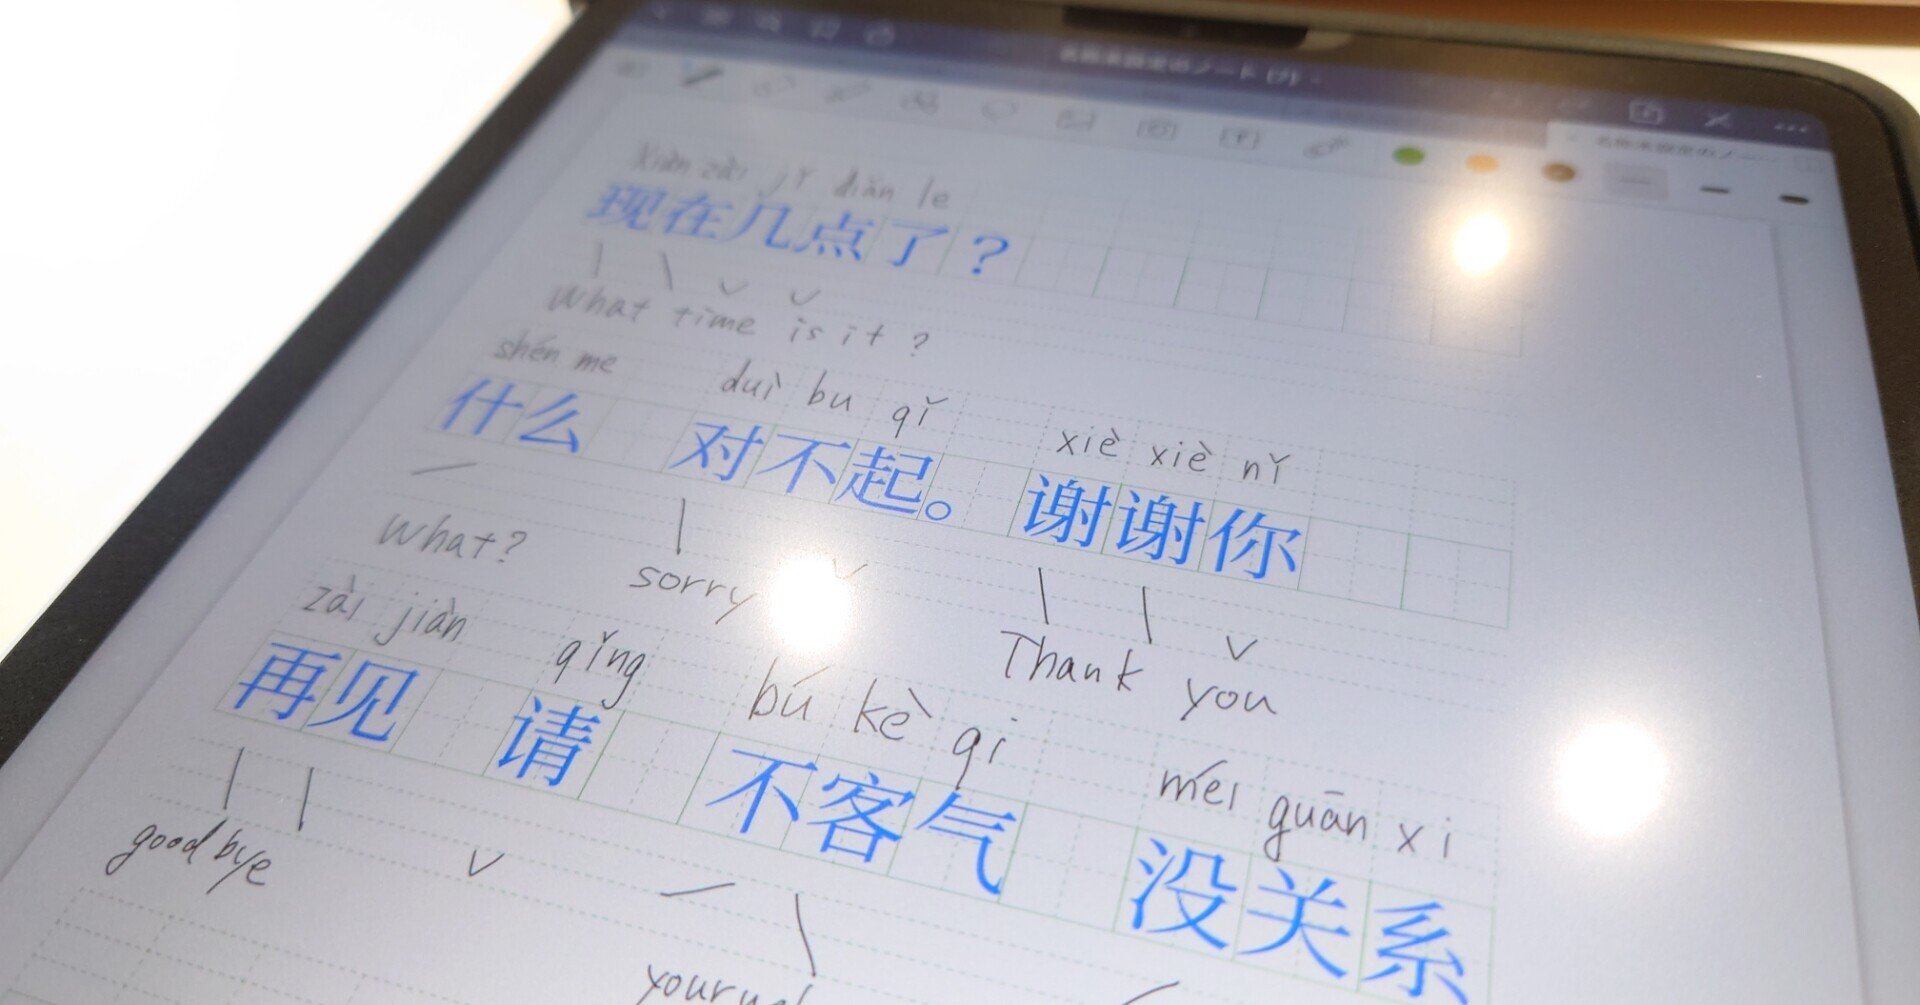 xiàn zài jǐ diǎn le
现在几点了？
What time is it ?
shén me duì bu qǐ xiè xiè nǐ
什么 对不起。 谢谢你
What? sorry Thank you
zài jiàn qǐng bú kè qi méi guān xi
再见 请 不客气 没关系
good bye